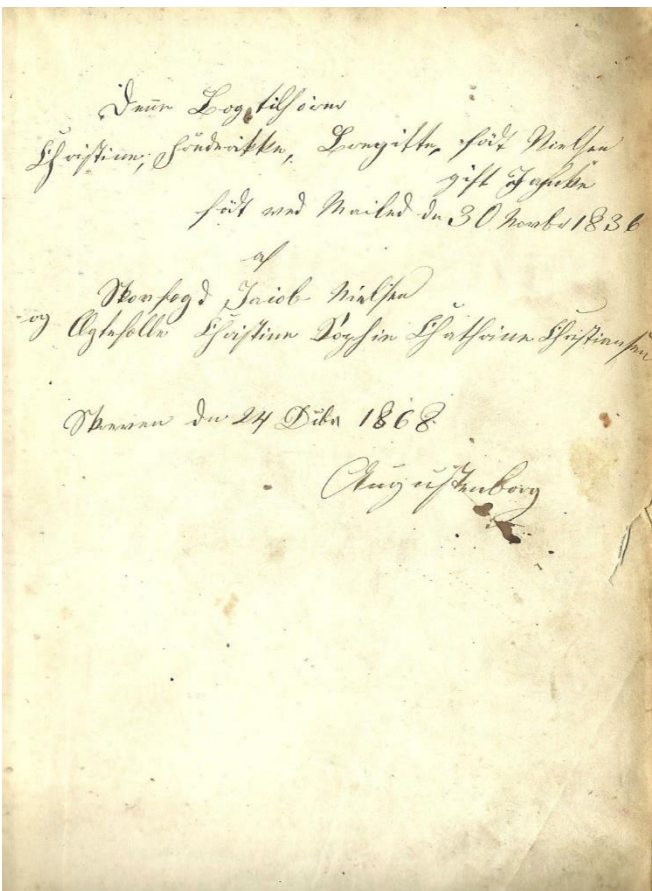 Denne Bog tilhører
Christine, Friedrikke, Bregitte, født Nielsen
gift Jahnke
født ved Mailed d. 30 Novbr 1836
af
Skovfogd Jacob Nielsen
og Ægtefælle Christine Sophie Chathrine Christiansen
den 24 1868
Augustenborg